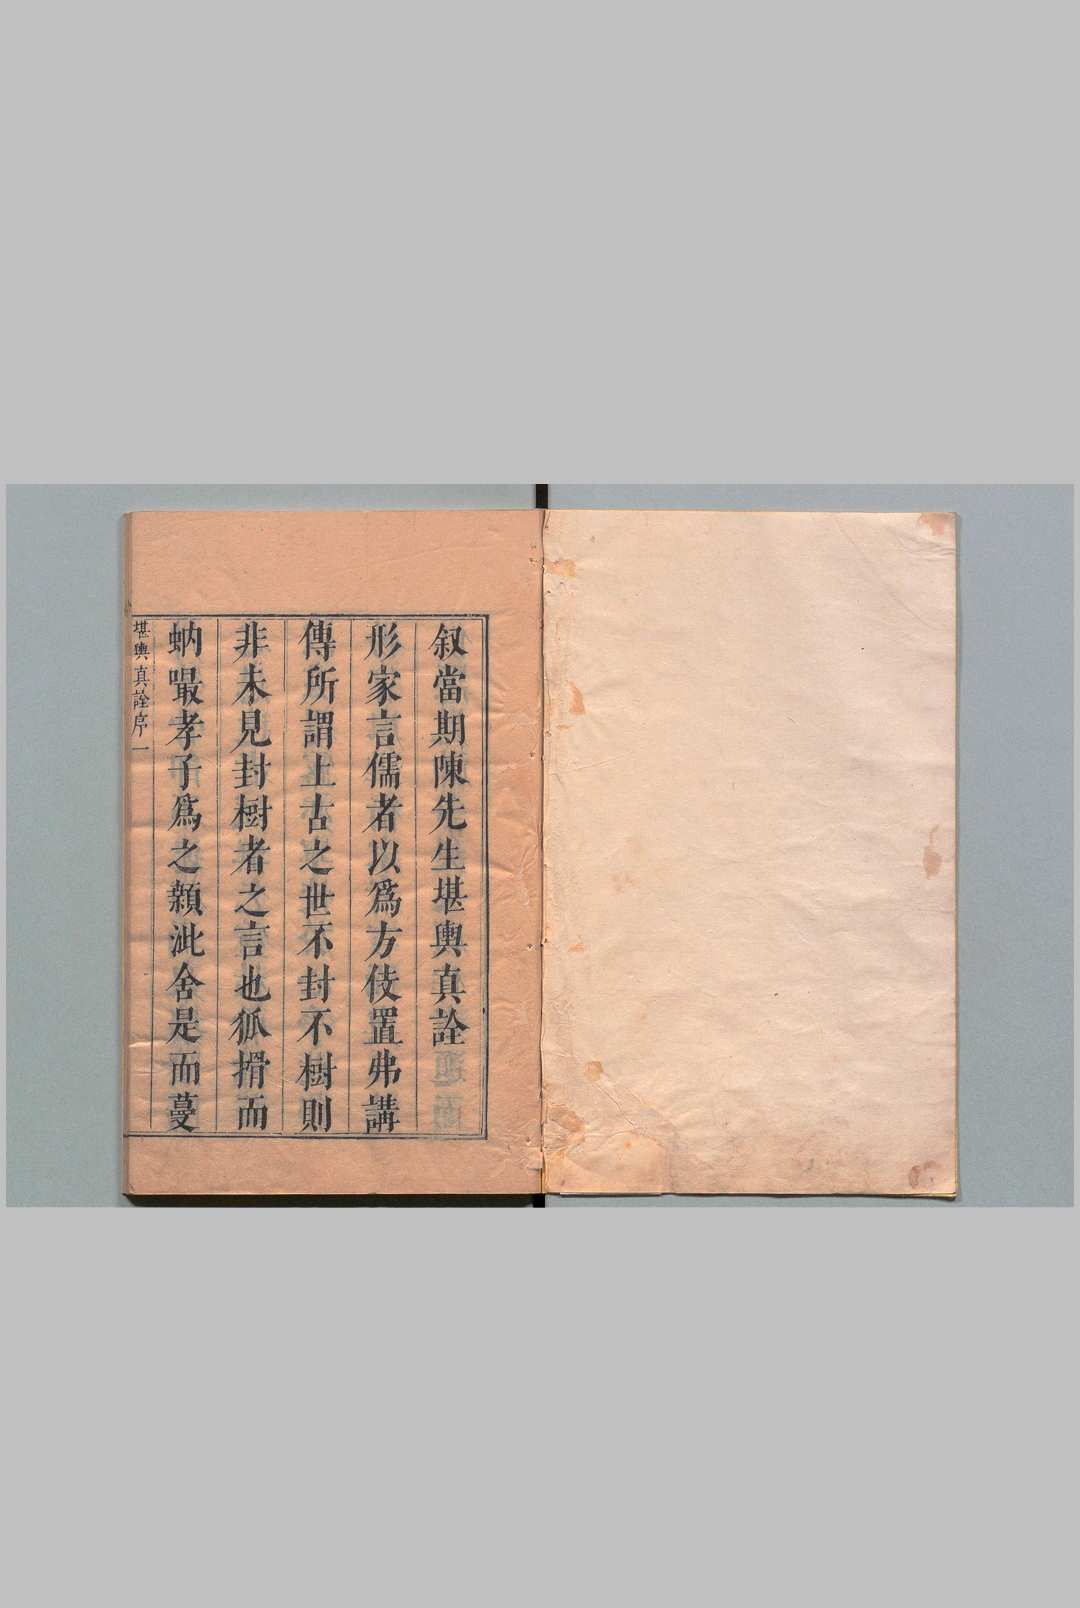 叙當期陳先生堪輿真詮
形家言儒者以爲方伎置弗講
傳所謂上古之世不封不樹則
非未見封樹者之言也狐搰而
蚋嘬孝子爲之顙泚舍是而蔓
堪輿真詮序 一